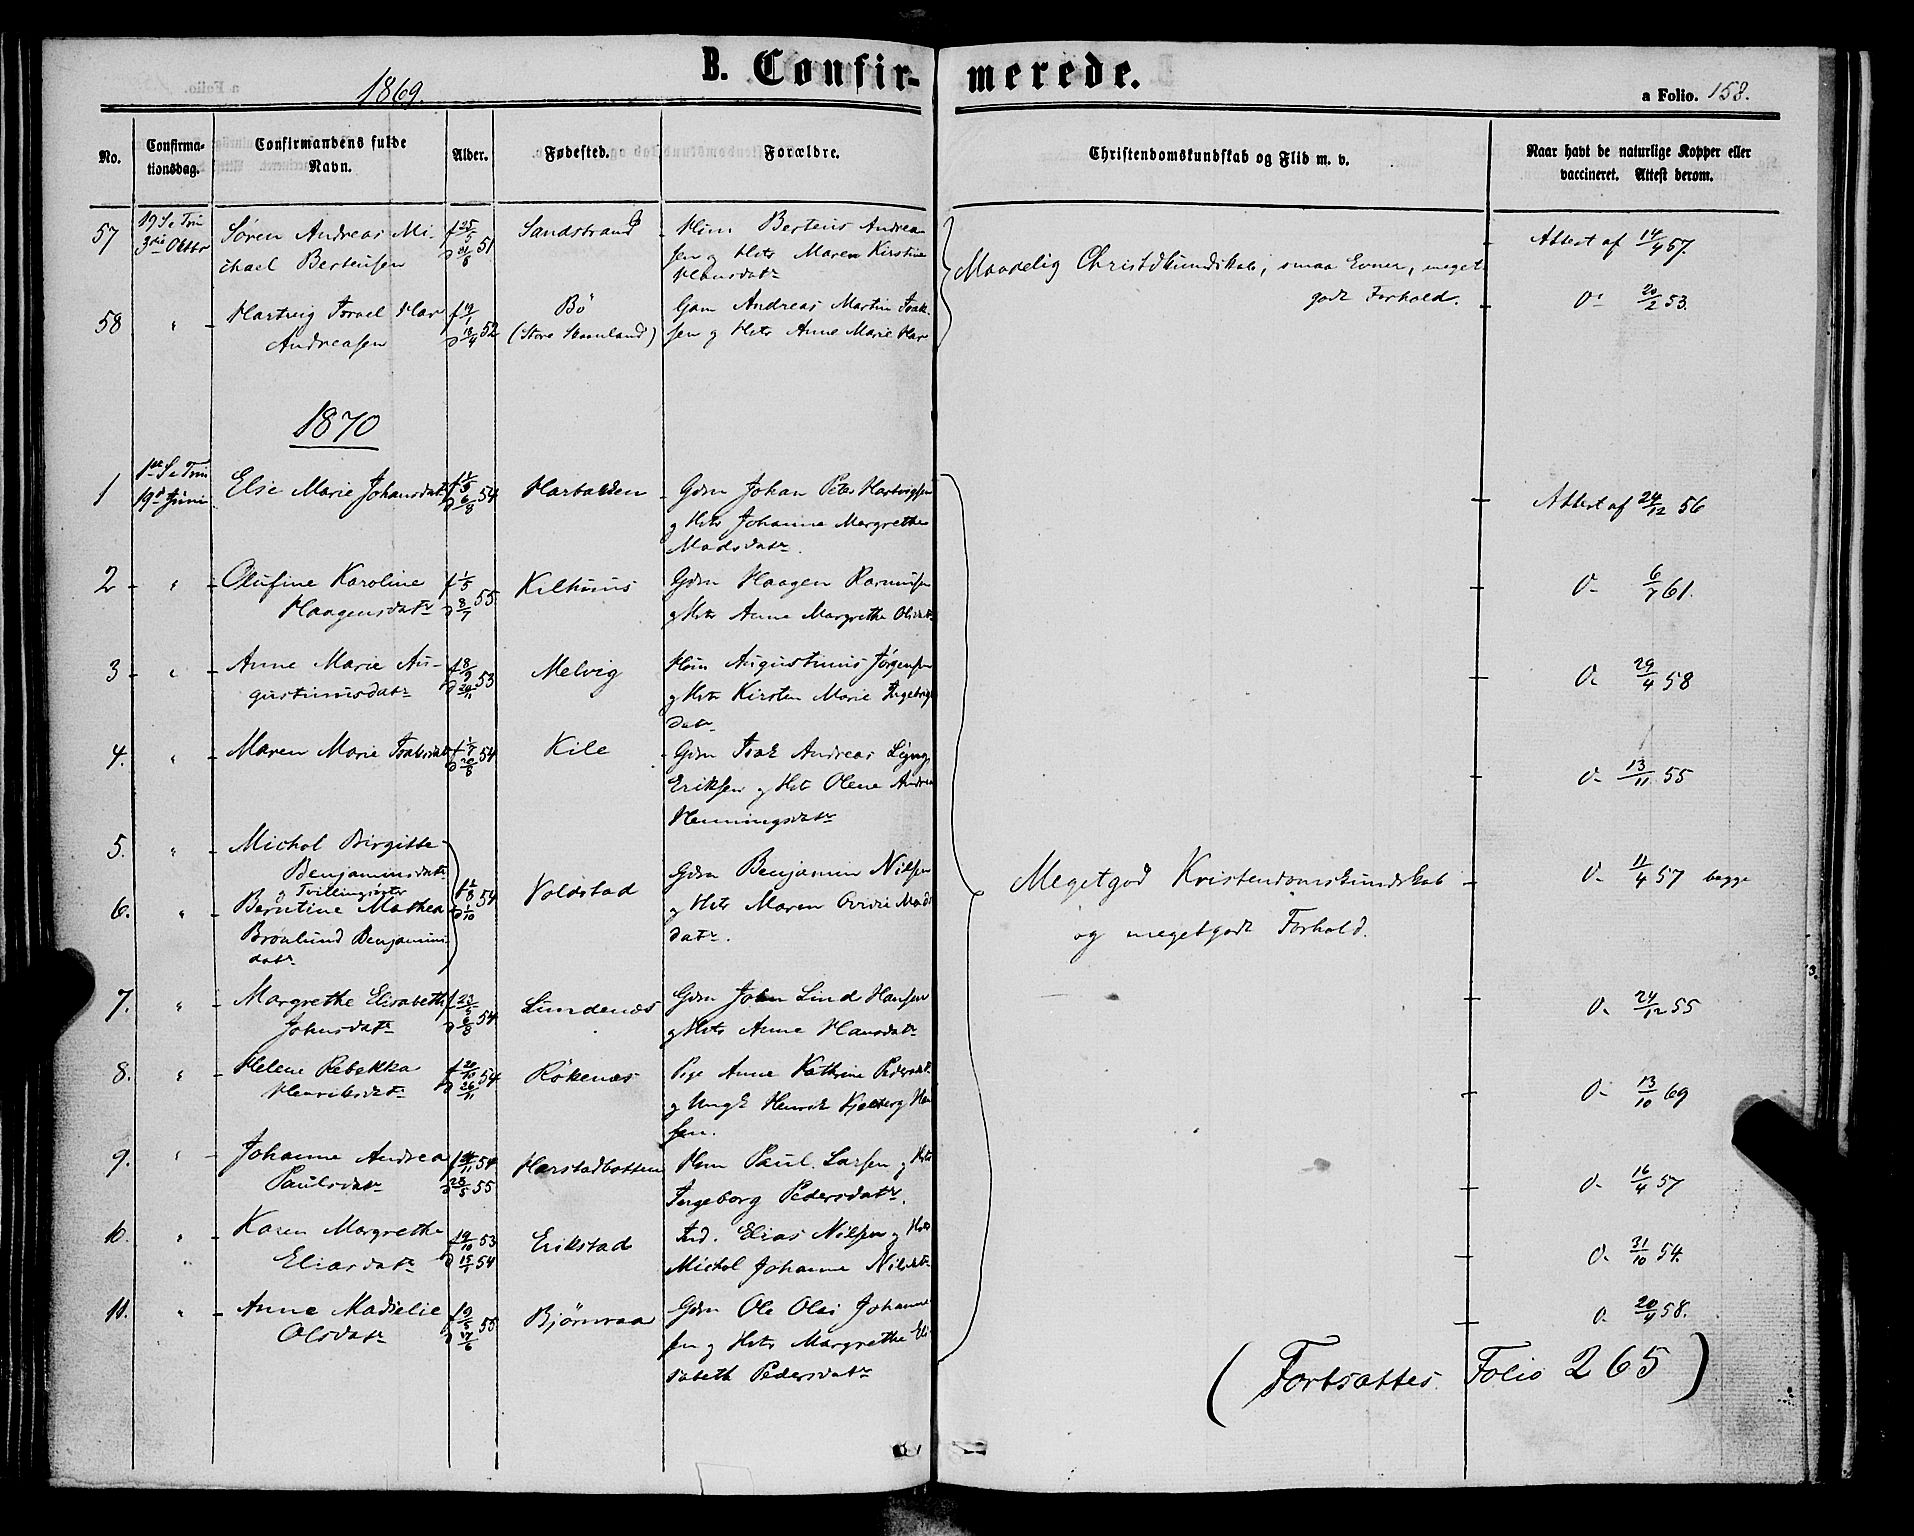 B. Confir-merede.
1869.
a Folio. 158.
No.
Confirma-
tionsdag.
Confirmandens fulde
Navn.
Alder.
Fødested.
Forældre.
Christendomskundskab og Flid m. v.
Naar havt de naturlige Kopper eller
vaccineret. Attest derom.
57
19 S e Trin
3die Oktbr
Søren Andreas Mi-
chael Berteusen
f 25/5 51
Sandstrand
Berteus Andrea-
sen og Hstr Maren Kirstine
Hansdatr
Maadelig Christdkundskab, smaa Evner, meget
godt Forhold.
Attest af 14/4 57.
58
"
Hartvig Israel Har
Andreasen
52
Bö
(Store Haanland)
Gdm Andreas Martin Isak-
sen og Hstr Anne Marie Har
20/2 53.
1870
1
1ste S e Trin
19de Juni
Else Marie Johansdatr
54
Gdm Johan Peter Hartvigsen
og Hstr Johanna Margrethe
Madsdatr.
Attest af 24/12 56
2
"
Olufine Karoline
Haagensdatr
f 1/5
D 8/7 55
Kilhuus
Gdm Haagen Rasmusen
og Hstr Anne Margrethe Olsdatr
6/7 61.
3
"
Anne Marie Au-
gustinusdatr
f 8/9 53
Melvig
Augustinus Jörgensen
og Hstr Kirsten Marie Ingebrigt
datr
29/4 58
4.
"
Maren Marie Isaksdatr
54
Kile
Gdm Isak Andreas
Eriksen og Hstr Olene Andrea
Henningsdatr
13/11 55
5.
"
Michol Birgitte
Benjaminsdatr
og Tvillingsöster
6.
"
Berntine Mathea
Brönlund Benjamins
datr
54
Voldstad
Gdm Benjamin Nilsen
og Hstr Maren Ovidie Mads
datr.
Megetgod Kristendomskundskab
og megetgodt Forhold.
11/4 57 begge
7.
"
Margrethe Elisabeth
Johnsdatr
f 23/5
D 6/8 54
Lundenæs
Gdm John Lind Hansen
og Hstr Anne Hansdatr
24/12 55
8.
"
Helene Rebekka
Henriksdatr
f 20/10
D 26/11 54
Rökenæs
Pige Anne Kathrine Pedersdatr
og Ungk Henrik Kjelberg Han
sen.
13/10 69
9.
"
Johanne Andrea
Paulsdatr
54
55
Harstadbotten
Hm Paul Larsen og Hstr
Ingeborg Pedersdatr.
16/4 57
10.
"
Karen Margrethe
Eliasdatr
f 19/10 53
D 15/1 54
Erikstad
Ind. Elias Nilsen og Hstr
Michol Johanna Nilsdatr
31/10 54.
11.
"
Anne Madselie
Olsdatr
f 19/5
D 17/6 55
Bjørnraa
Gdm Ole Olai Johanne-
sen og Hstr Margrethe Eli-
sabeth Pedersdatr
20/4 58.
(Fortsættes Folio 265)